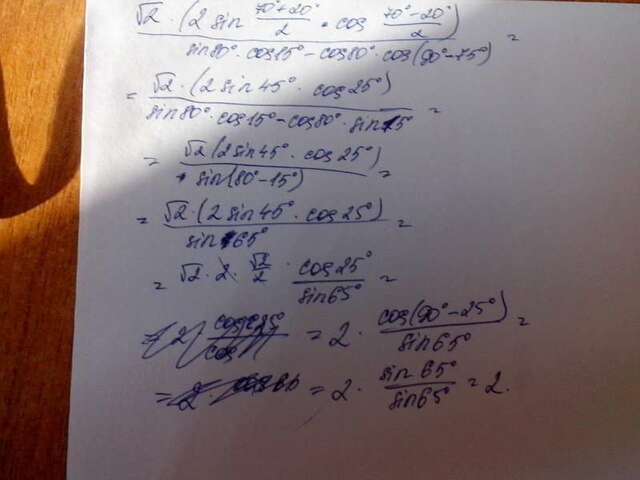 √2 · (2 sin (70°+20°)/2 · cos (70°−20°)/2) / (sin80° · cos15° − cos80° · cos(90°−75°)) =
= √2 · (2 sin 45° · cos 25°) / (sin80° · cos15° − cos80° · sin15°) =
= √2 (2 sin 45° · cos 25°) / sin(80°−15°) =
= √2 · (2 sin 45° · cos 25°) / sin 65° =
= √2 · 2 · √2/2 · cos 25° / sin 65° =
= 2 · cos(90°−25°) / sin 65° =
= 2 · sin 65° / sin 65° = 2.